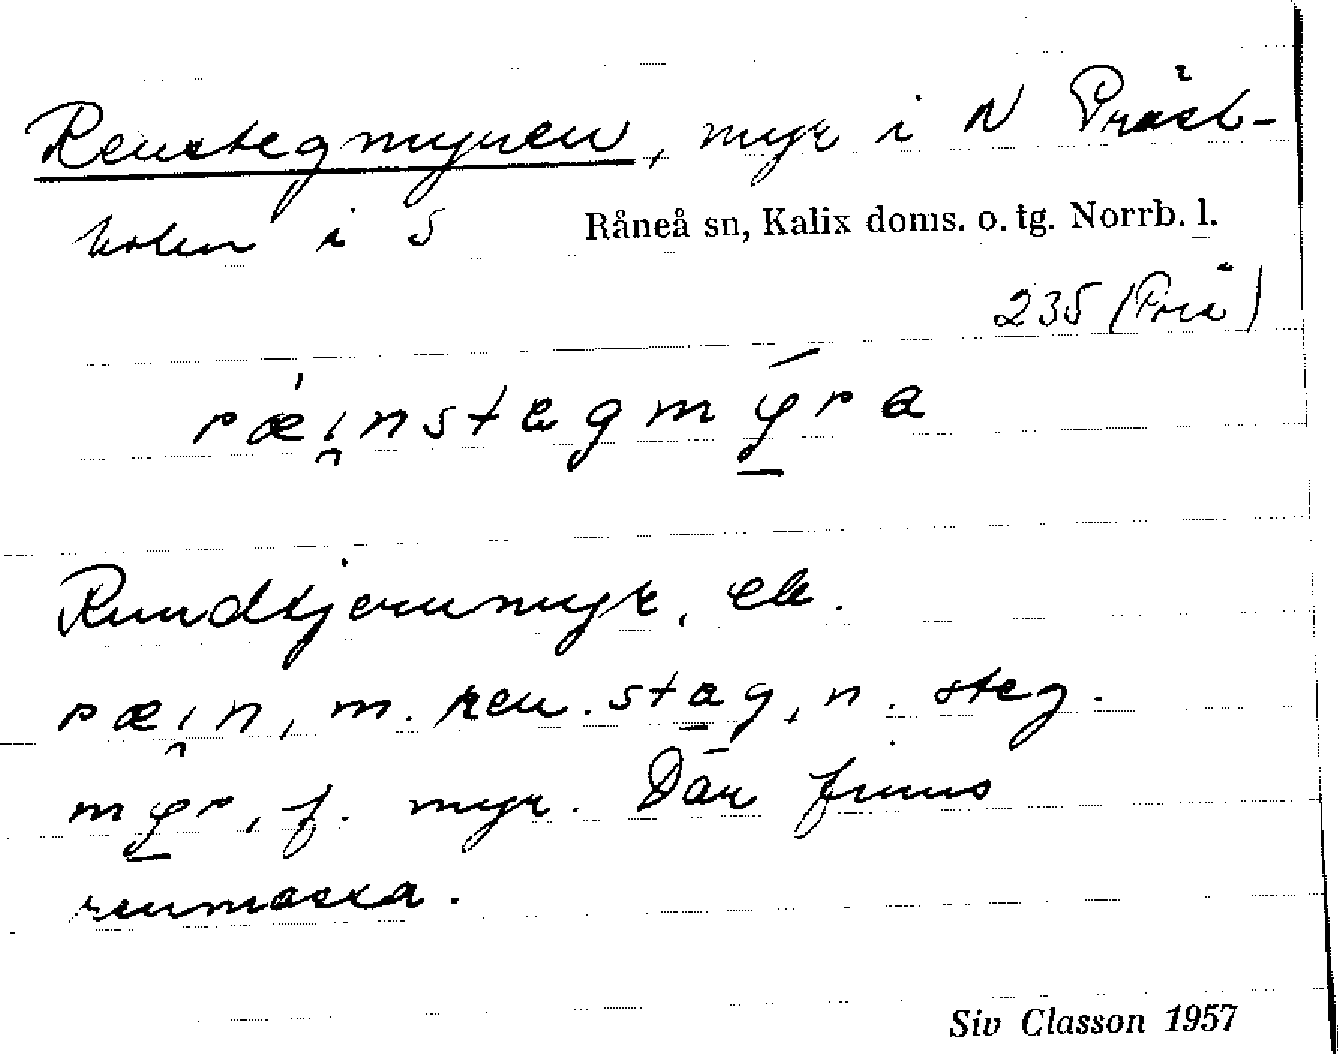 Renstegmyren, myr i N Präst-
holm i S Råneå sn, Kalix doms. o. tg. Norrb. l.
235 (Prä)
ræ̍i̯nstegmý̱ra
Rundtjernmyr, ek.
ræi̯n, m. ren. sta̱g, n. steg.
my̱r, f. myr. Där finns
renmossa.
Siv Classon 1957